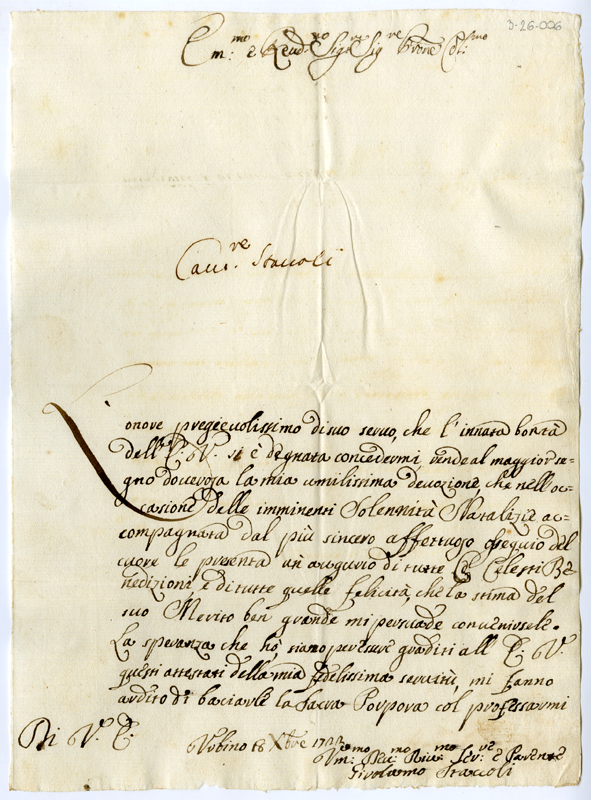 3-26-006
Em:mo e Revd:mo Sig:re Sig:re Prone Col:mo
Cav:re Staccoli
L'onore pregievolissimo di suo servo, che l'innata bontà
dell'E: V: si è degnata concedermi, rende al maggior se=
gno doverosa la mia umilissima devozione, che nell'oc=
casione delle imminenti Solennità Natalizie ac=
compagnata dal più sincero affettuoso ossequio del
cuore le presenta un augurio di tutte le Celesti Be=
nedizioni, e di tutte quelle felicità, che la stima del
suo Merito ben grande mi persuade convenirsele.
La speranza che hò, siano per essere graditi all'E: V:
questi attestati della mia fedelissima servitù, mi fanno
ardito di baciarle la Sacra Porpora col professarmi
Di V:ra E:
Urbino 18 Xbre
Um:mo Dev:mo Serv:re e Parente
Girolamo Staccoli